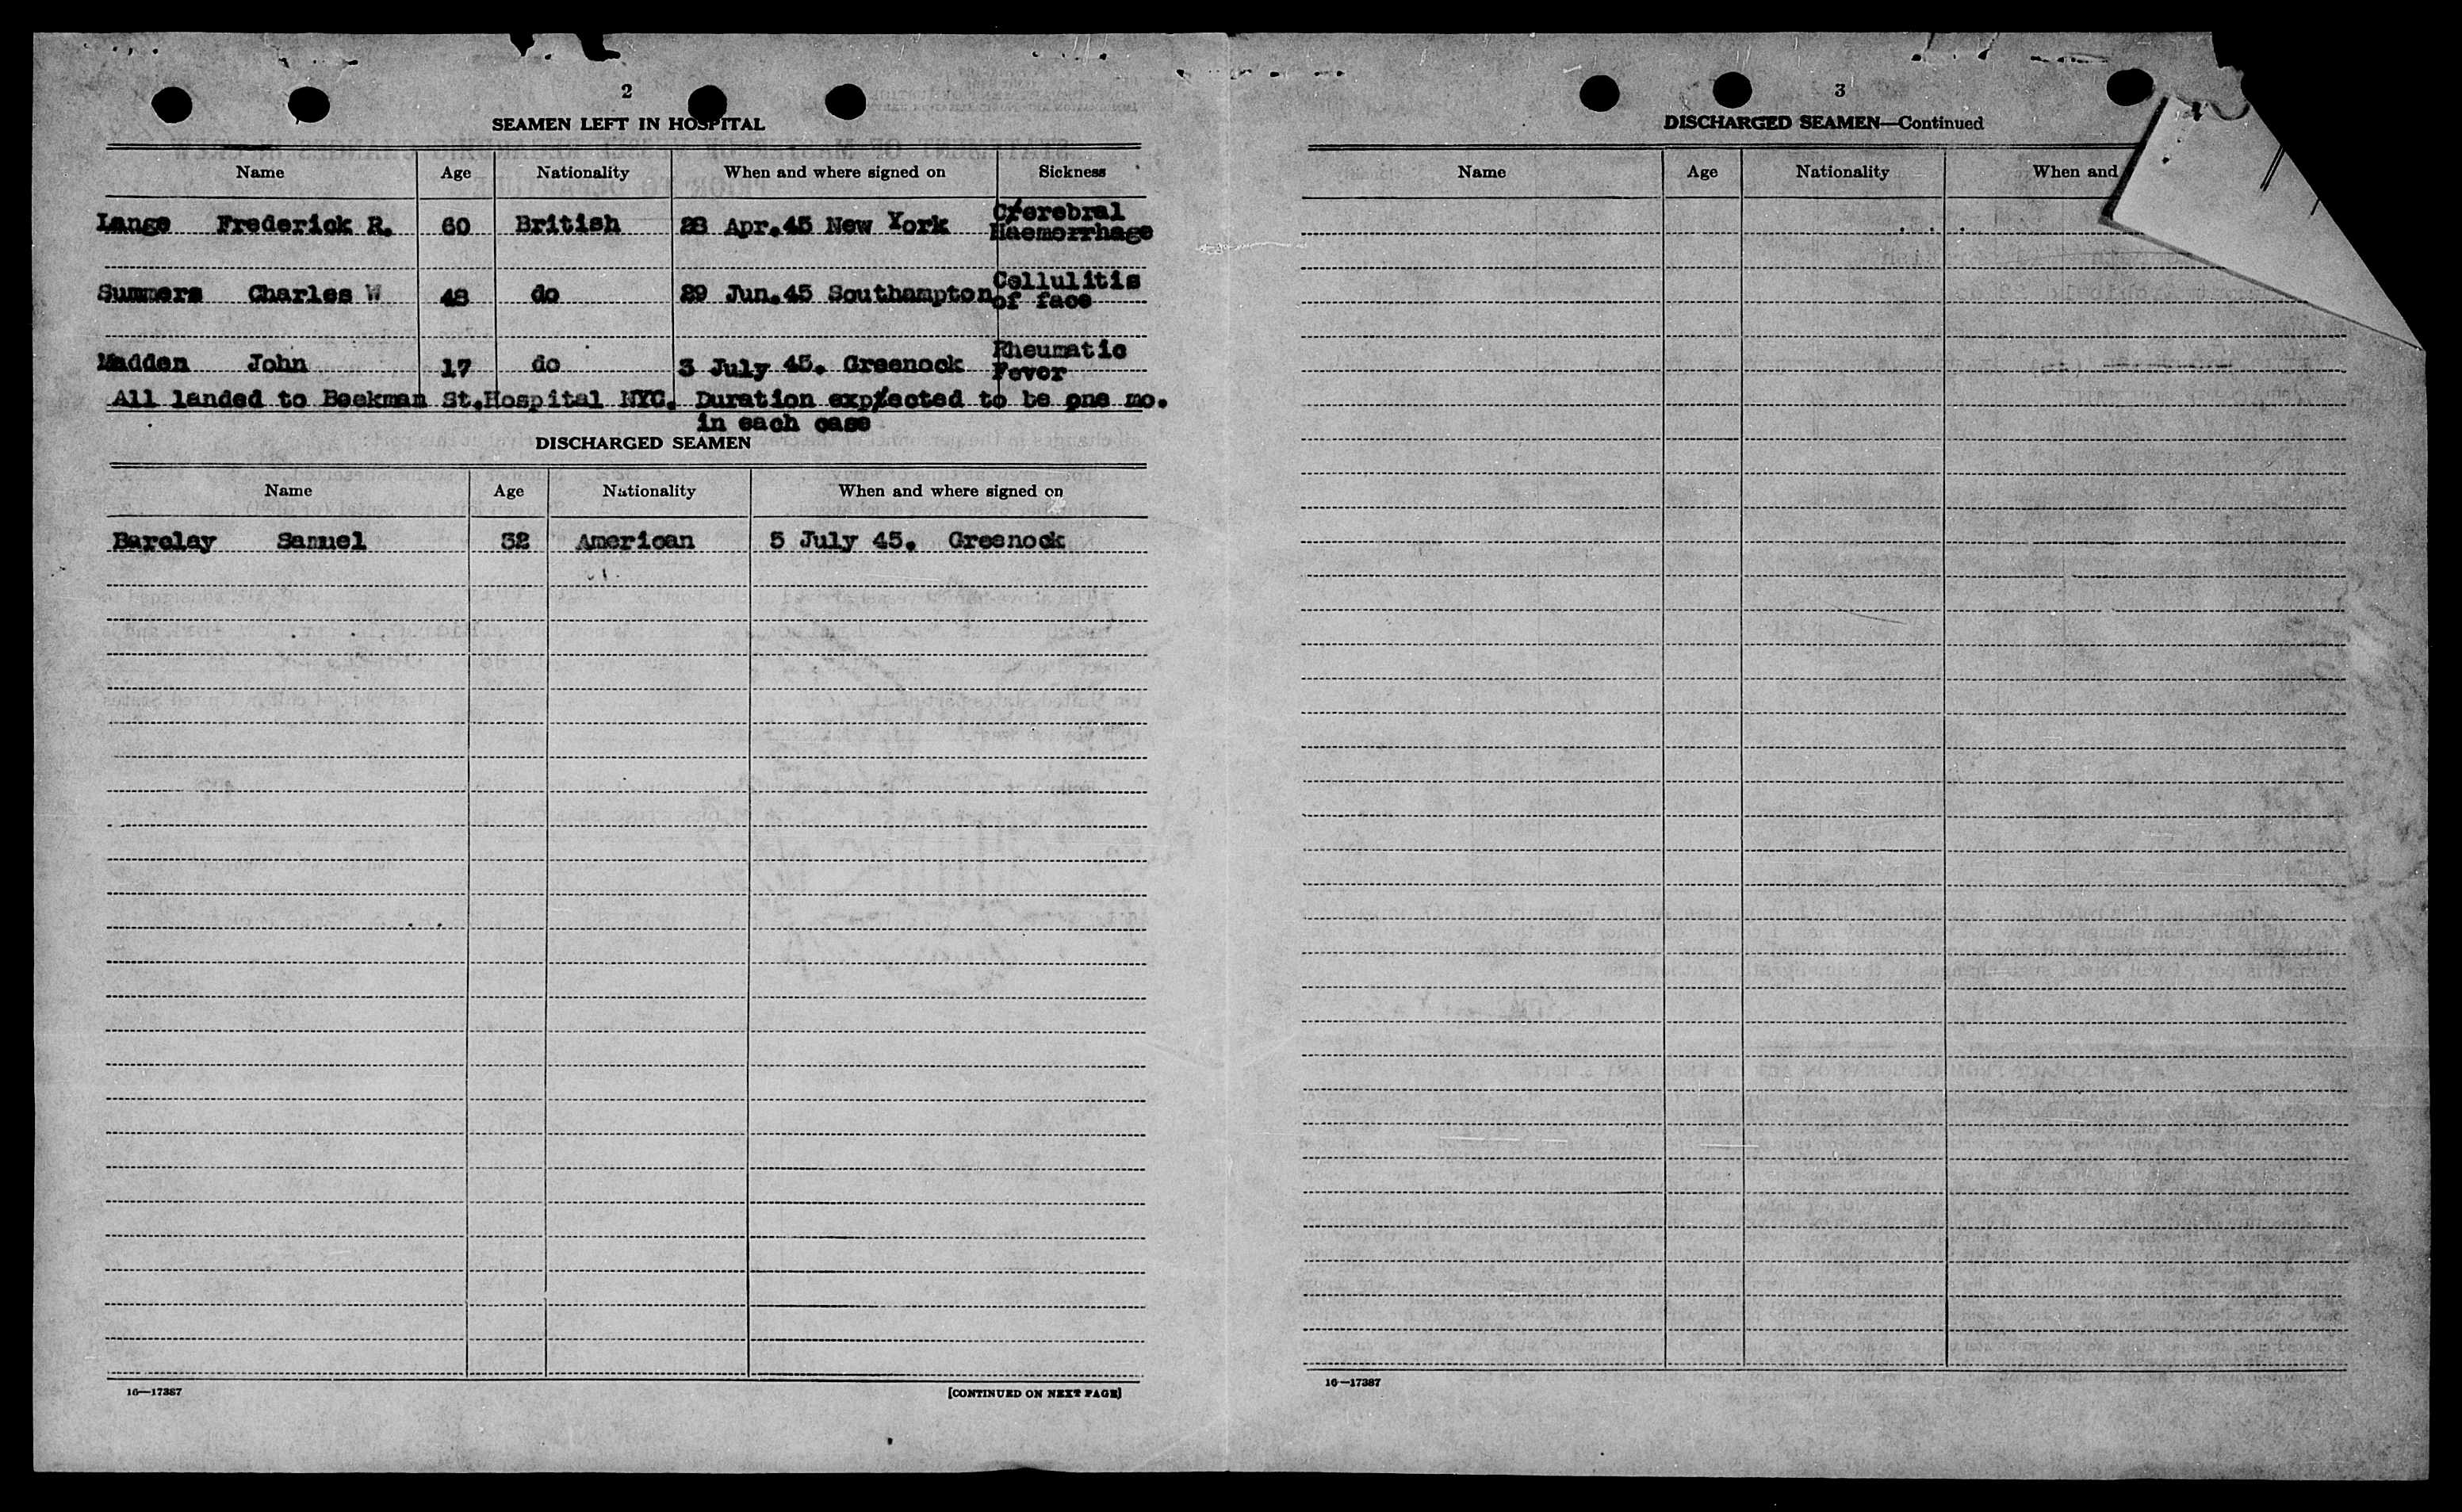 2
SEAMEN LEFT IN HOSPITAL
Name Age Nationality When and where signed on Sickness
Lange Frederick R. 60 British 28 Apr.45 New York Cerebral
Haemorrhage
Summers Charles W 48 do 29 Jun.45 Southampton Cellulitis
of face
Madden John 17 do 3 July 45. Greenock Rheumatic
Fever
All landed to Beekman St.Hospital NYC. Duration expected to be one mo.
in each case
DISCHARGED SEAMEN
Name Age Nationality When and where signed on
Barclay Samuel 32 American 5 July 45. Greenock
16—17387
[CONTINUED ON NEXT PAGE]
3
DISCHARGED SEAMEN—Continued
Name Age Nationality When and
16—17387